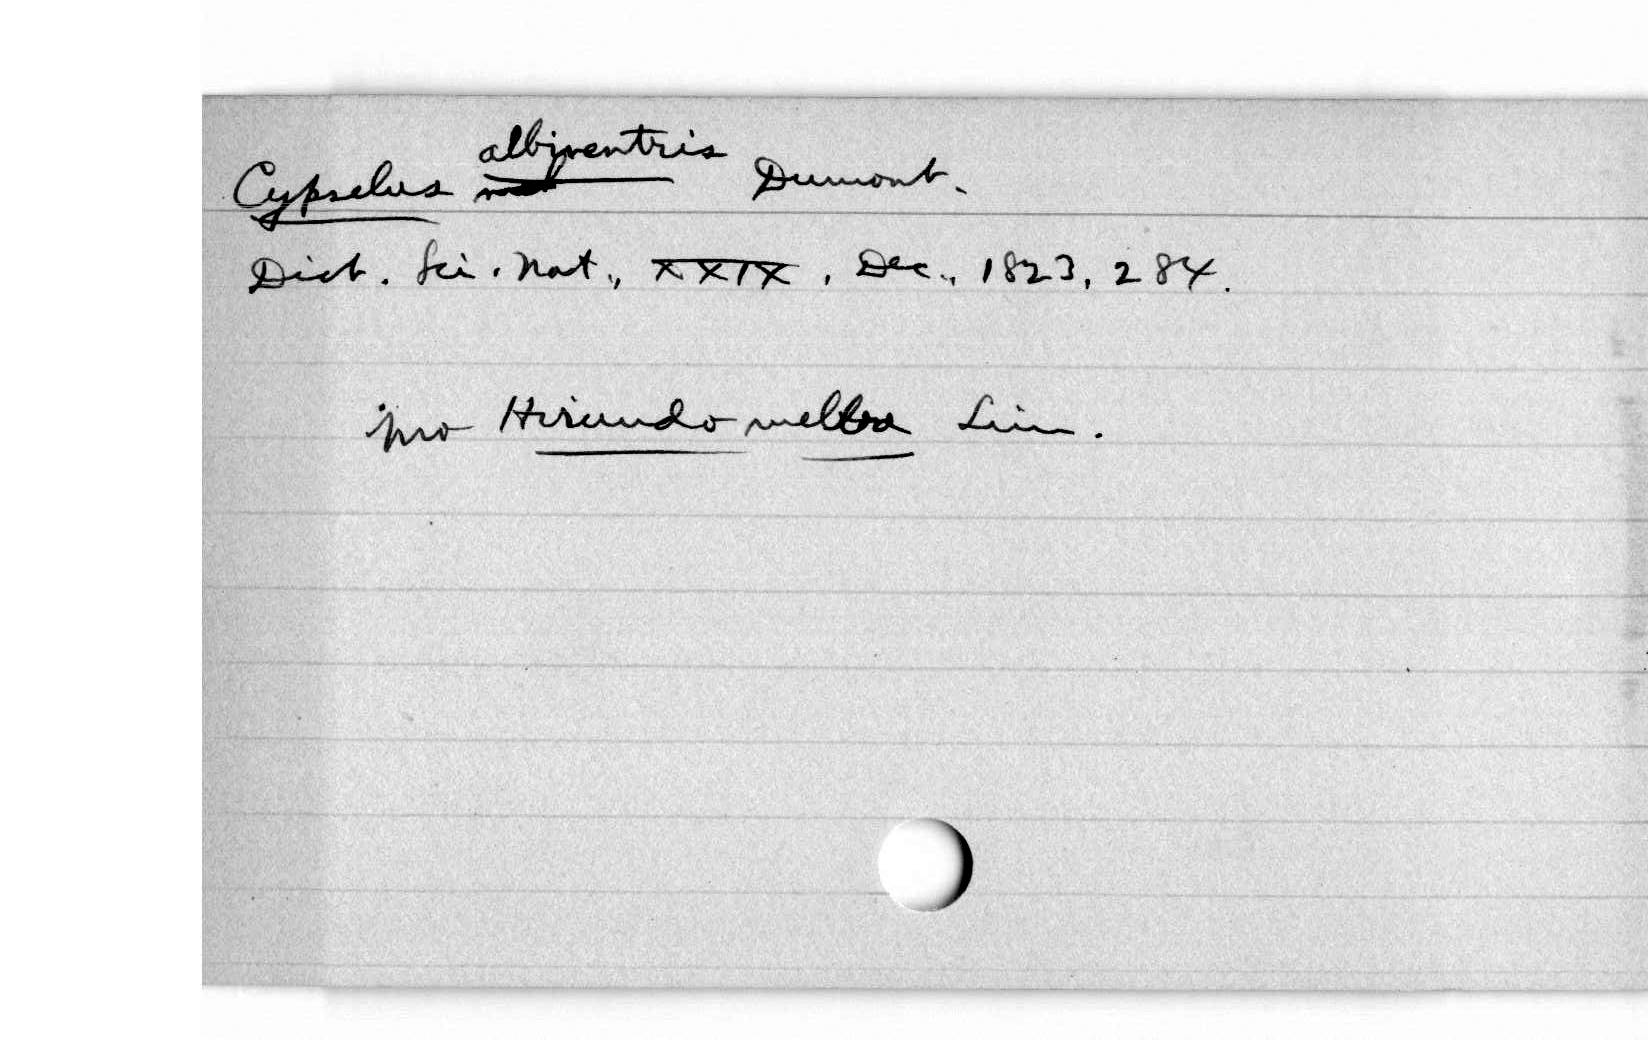 Cypselus albiventris Dumont.
Dict. Sci. Nat., XXIX, Dec., 1823, 284.
pro Hirundo melba Linn.